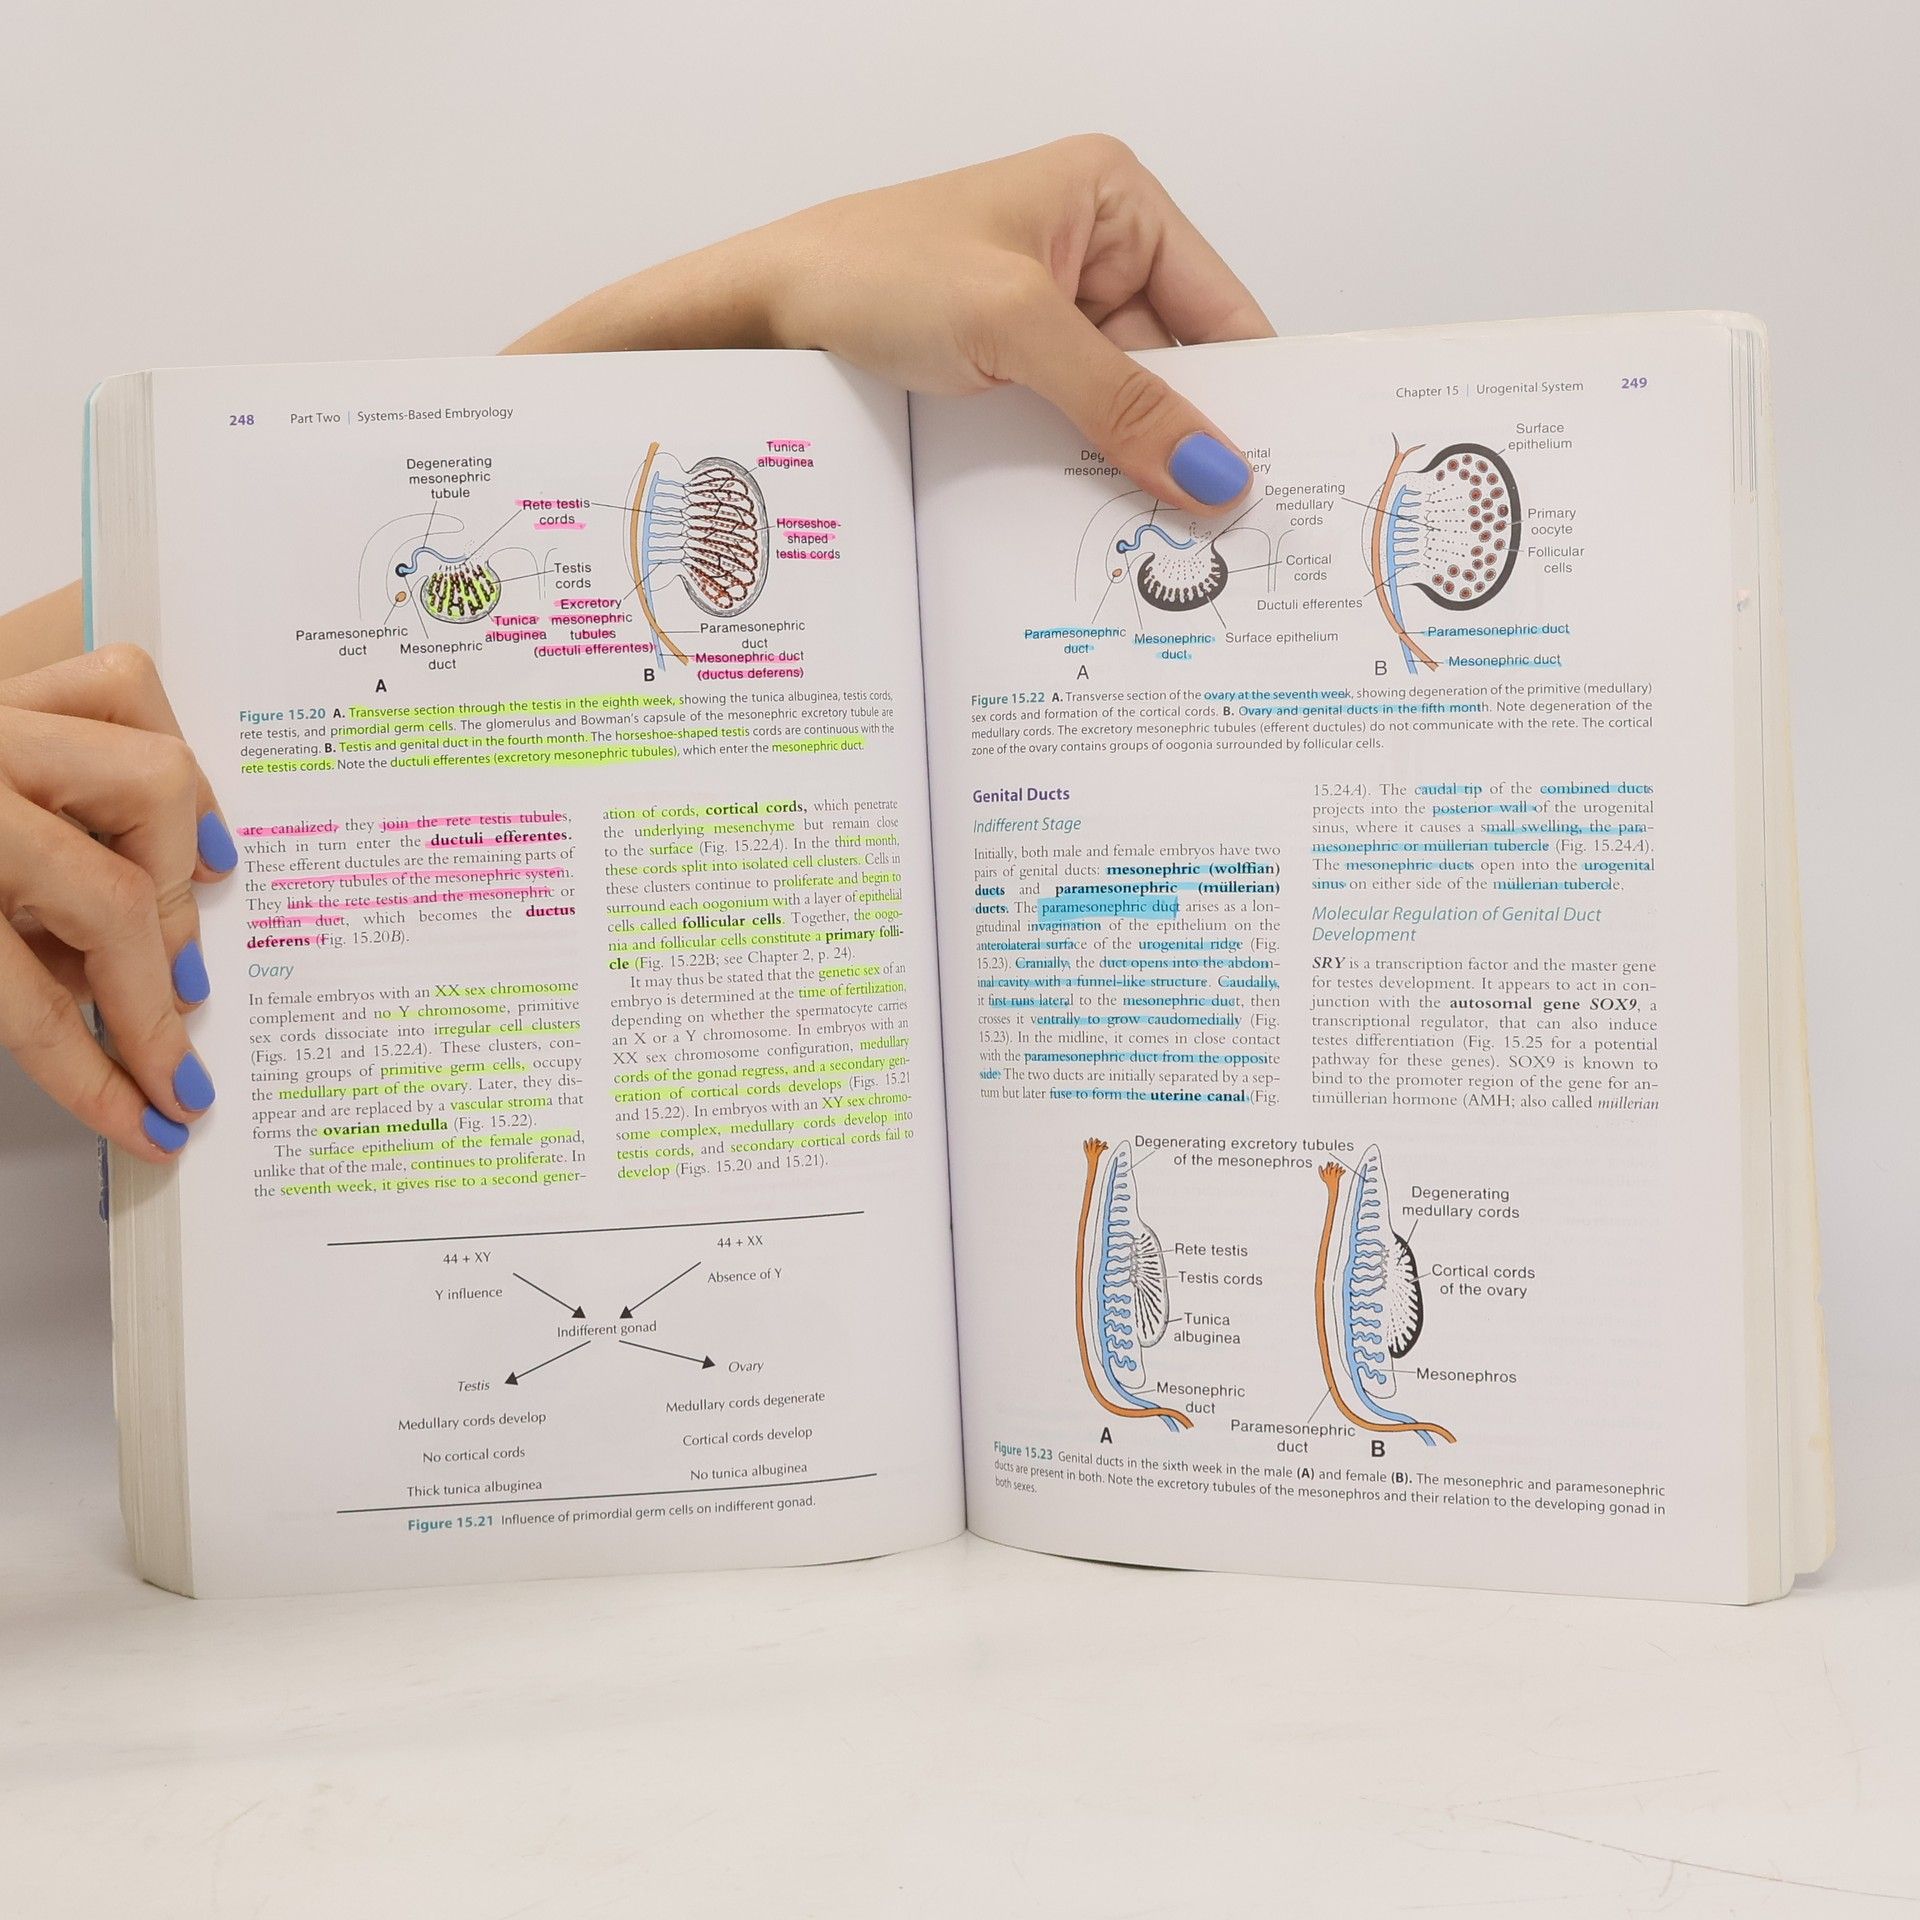 248 Part Two | Systems-Based Embryology
Degenerating
mesonephric
tubule
Rete testis
cords
Testis
cords
Tunica
albuginea
Paramesonephric
duct
Mesonephric
duct
A
Tunica
albuginea
Horseshoe-
shaped
testis cords
Excretory
mesonephric
tubules
(ductuli efferentes)
Paramesonephric
duct
Mesonephric duct
(ductus deferens)
B
Figure 15.20 A. Transverse section through the testis in the eighth week, showing the tunica albuginea, testis cords,
rete testis, and primordial germ cells. The glomerulus and Bowman's capsule of the mesonephric excretory tubule are
degenerating. B. Testis and genital duct in the fourth month. The horseshoe-shaped testis cords are continuous with the
rete testis cords. Note the ductuli efferentes (excretory mesonephric tubules), which enter the mesonephric duct.
are canalized, they join the rete testis tubules,
which in turn enter the ductuli efferentes.
These efferent ductules are the remaining parts of
the excretory tubules of the mesonephric system.
They link the rete testis and the mesonephric or
wolffian duct, which becomes the ductus
deferens (Fig. 15.20B).
Ovary
In female embryos with an XX sex chromosome
complement and no Y chromosome, primitive
sex cords dissociate into irregular cell clusters
(Figs. 15.21 and 15.22A). These clusters, con-
taining groups of primitive germ cells, occupy
the medullary part of the ovary. Later, they dis-
appear and are replaced by a vascular stroma that
forms the ovarian medulla (Fig. 15.22).
The surface epithelium of the female gonad,
unlike that of the male, continues to proliferate. In
the seventh week, it gives rise to a second gener-
ation of cords, cortical cords, which penetrate
the underlying mesenchyme but remain close
to the surface (Fig. 15.22A). In the third month,
these cords split into isolated cell clusters. Cells in
these clusters continue to proliferate and begin to
surround each oogonium with a layer of epithelial
cells called follicular cells. Together, the oogo-
nia and follicular cells constitute a primary folli-
cle (Fig. 15.22B; see Chapter 2, p. 24).
It may thus be stated that the genetic sex of an
embryo is determined at the time of fertilization,
depending on whether the spermatocyte carries
an X or a Y chromosome. In embryos with an
XX sex chromosome configuration, medullary
cords of the gonad regress, and a secondary gen-
eration of cortical cords develops (Figs. 15.21
and 15.22). In embryos with an XY sex chromo-
some complex, medullary cords develop into
testis cords, and secondary cortical cords fail to
develop (Figs. 15.20 and 15.21).
44 + XY
Y influence
44 + XX
Absence of Y
Indifferent gonad
Testis
Medullary cords develop
No cortical cords
Thick tunica albuginea
Ovary
Medullary cords degenerate
Cortical cords develop
No tunica albuginea
Figure 15.21 Influence of primordial germ cells on indifferent gonad.
Chapter 15 | Urogenital System 249
Degenerating
medullary
cords
Cortical
cords
Ductuli efferentes
Paramesonephric
duct
Mesonephric
duct
Surface epithelium
A
Surface
epithelium
Primary
oocyte
Follicular
cells
Paramesonephric duct
Mesonephric duct
B
Figure 15.22 A. Transverse section of the ovary at the seventh week, showing degeneration of the primitive (medullary)
sex cords and formation of the cortical cords. B. Ovary and genital ducts in the fifth month. Note degeneration of the
medullary cords. The excretory mesonephric tubules (efferent ductules) do not communicate with the rete. The cortical
zone of the ovary contains groups of oogonia surrounded by follicular cells.
Genital Ducts
Indifferent Stage
Initially, both male and female embryos have two
pairs of genital ducts: mesonephric (wolffian)
ducts and paramesonephric (müllerian)
ducts. The paramesonephric duct arises as a lon-
gitudinal invagination of the epithelium on the
anterolateral surface of the urogenital ridge (Fig.
15.23). Cranially, the duct opens into the abdom-
inal cavity with a funnel-like structure. Caudally,
it first runs lateral to the mesonephric duct, then
crosses it ventrally to grow caudomedially (Fig.
15.23). In the midline, it comes in close contact
with the paramesonephric duct from the opposite
side. The two ducts are initially separated by a sep-
tum but later fuse to form the uterine canal (Fig.
15.24A). The caudal tip of the combined ducts
projects into the posterior wall of the urogenital
sinus, where it causes a small swelling, the para-
mesonephric or müllerian tubercle (Fig. 15.24A).
The mesonephric ducts open into the urogenital
sinus on either side of the müllerian tubercle.
Molecular Regulation of Genital Duct
Development
SRY is a transcription factor and the master gene
for testes development. It appears to act in con-
junction with the autosomal gene SOX9, a
transcriptional regulator, that can also induce
testes differentiation (Fig. 15.25 for a potential
pathway for these genes). SOX9 is known to
bind to the promoter region of the gene for an-
timüllerian hormone (AMH; also called müllerian
Degenerating excretory tubules
of the mesonephros
Rete testis
Testis cords
Tunica
albuginea
Mesonephric
duct
A
Degenerating
medullary cords
Cortical cords
of the ovary
Mesonephros
Paramesonephric
duct
B
Figure 15.23 Genital ducts in the sixth week in the male (A) and female (B). The mesonephric and paramesonephric
ducts are present in both. Note the excretory tubules of the mesonephros and their relation to the developing gonad in
both sexes.